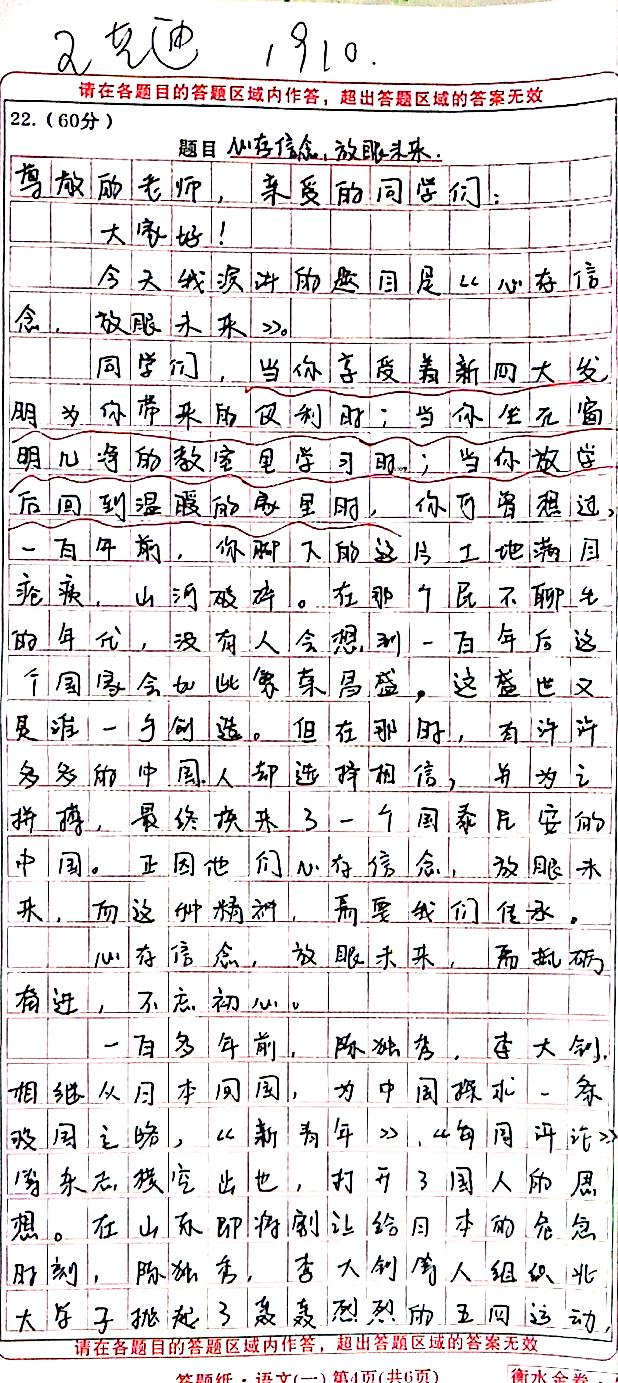 1910.
请在各题目的答题区域内作答，超出答题区域的答案无效
22.（60分）
题目 心存信念，放眼未来.
尊敬的老师，亲爱的同学们：
大家好！
今天我演讲的题目是《心存信
念，放眼未来》。
同学们，当你享受着新四大发
明为你带来的便利时；当你坐在窗
明几净的教室里学习时；当你放学
后回到温暖的家里时，你可曾想过，
一百年前，你脚下的这片土地满目
疮痍，山河破碎。在那个民不聊生
的年代，没有人会想到一百年后这
个国家会如此繁荣昌盛，这盛世又
是谁一手创造。但在那时，有许许
多多的中国人却选择相信，并为之
拼搏，最终换来了一个国泰民安的
中国。正因他们心存信念，放眼未
来，而这种精神，需要我们传承。
心存信念，放眼未来，需砥砺
奋进，不忘初心。
一百多年前，陈独秀，李大钊，
相继从日本回国，为中国探求一条
救国之路，《新青年》，《每周评论》
等杂志横空出世，打开了国人的思
想。在山东即将割让给日本的危急
时刻，陈独秀，李大钊等人组织北
大学子掀起了轰轰烈烈的五四运动，
请在各题目的答题区域内作答，超出答题区域的答案无效
答题纸·语文(一) 第4页(共6页)
衡水金卷